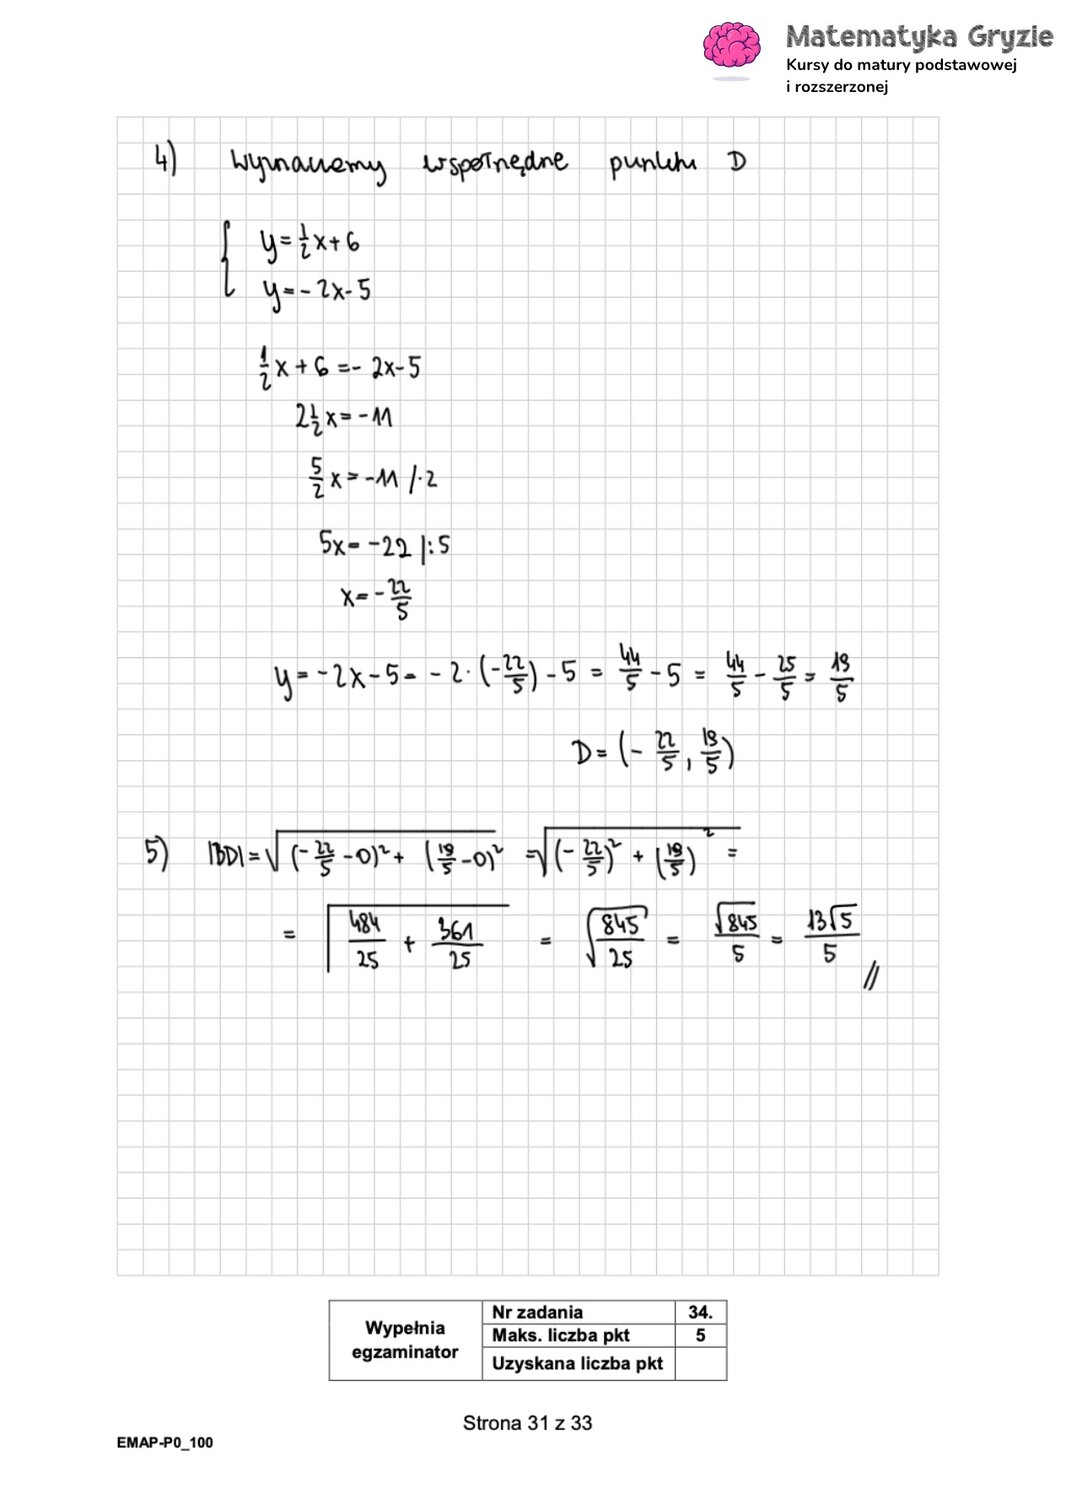 Matematyka Gryzie
Kursy do matury podstawowej
i rozszerzonej
4) Wyznaczamy współrzędne punktu D
y=½x+6
y=-2x-5
½x+6=-2x-5
2½x=-11
5/2 x=-11 /·2
5x=-22 |:5
x=-22/5
y=-2x-5=-2·(-22/5)-5=44/5-5=44/5-25/5=19/5
D=(-22/5, 19/5)
5) |BD|=√((-22/5-0)²+(19/5-0)²)=√((-22/5)²+(19/5)²)=
=√(484/25+361/25)=√(845/25)=√845/5=13√5/5 //
Wypełnia
egzaminator
Nr zadania 34.
Maks. liczba pkt 5
Uzyskana liczba pkt
Strona 31 z 33
EMAP-P0_100